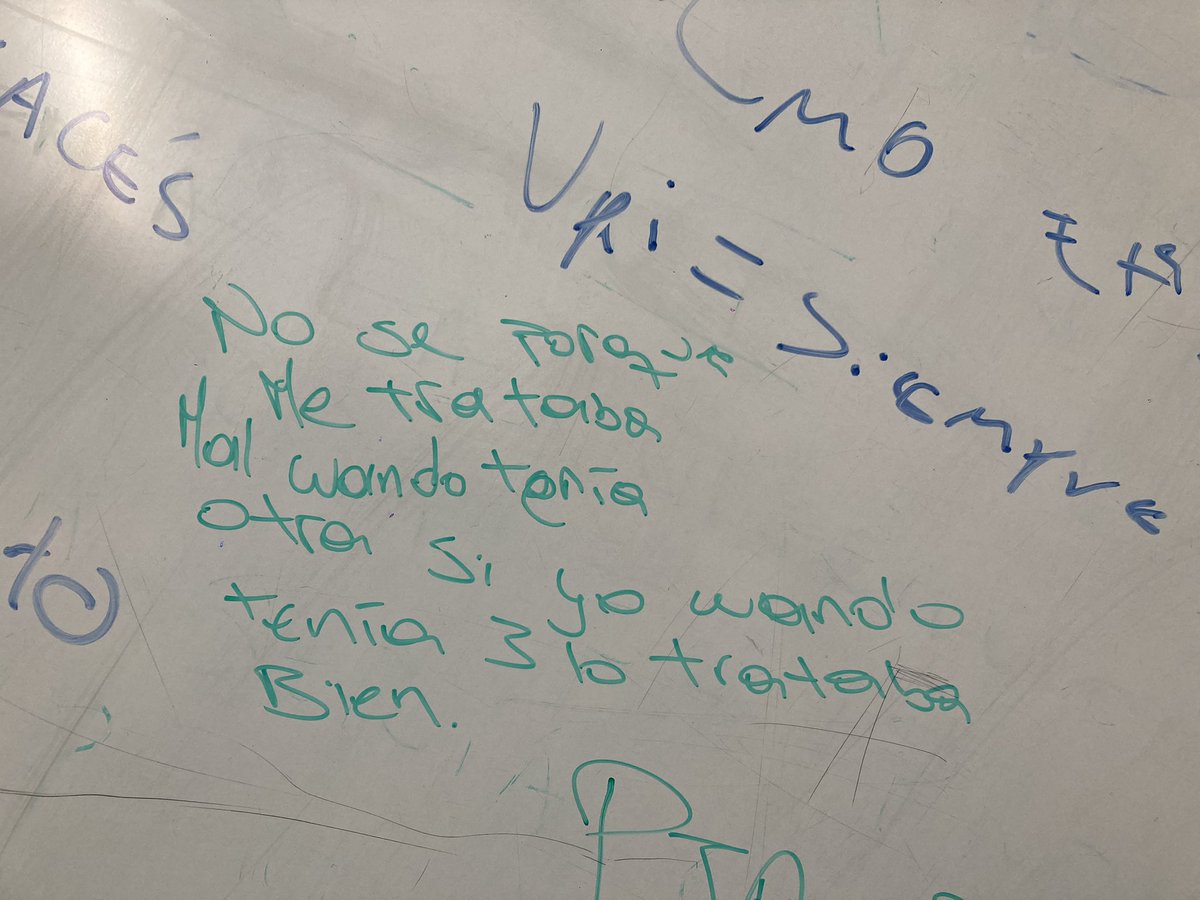 ACES
Upi = Siempre
No se Porque
Me trataba
Mal cuando tenía
otra si yo cuando
tenía 3 lo trataba
Bien.